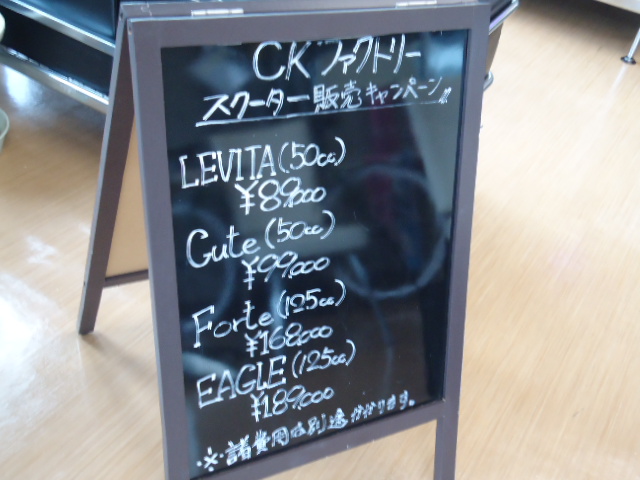 CKファクトリー
スクーター販売キャンペーン!!
LEVITA(50cc)
¥89,000
Cute(50cc)
¥99,000
Forte(125cc)
¥168,000
EAGLE(125cc)
¥189,000
※諸費用は別途かかります。